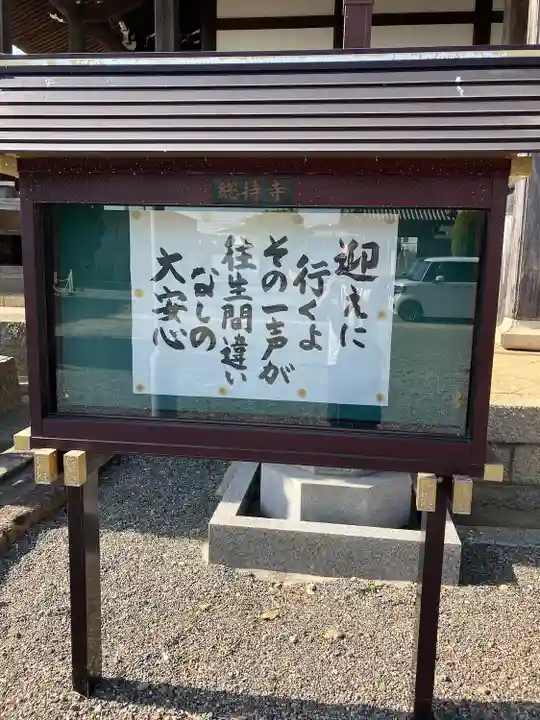 総持寺
迎えに
行くよ
その一声が
往生間違い
なしの
大安心